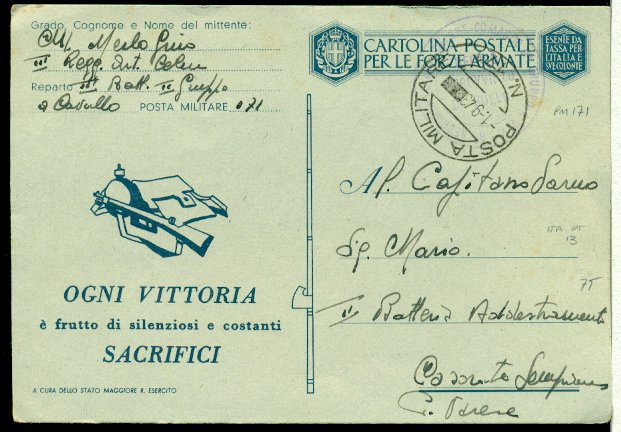 Grado, Cognome e Nome del mittente:
Merlo Gino
III Regg. Art. Celere
Reparto III Batt. II Gruppo
a Cavallo POSTA MILITARE 171
OGNI VITTORIA
è frutto di silenziosi e costanti
SACRIFICI
A CURA DELLO STATO MAGGIORE R. ESERCITO
CARTOLINA POSTALE
PER LE FORZE ARMATE
ESENTE DA
TASSA PER
L'ITALIA E
SUE COLONIE
POSTA MILITARE N.
PM 171
Al Capitano
Sig. Mario
ITA PT
13
75
II Batteria Addestramento
Casorate Sempione
Varese